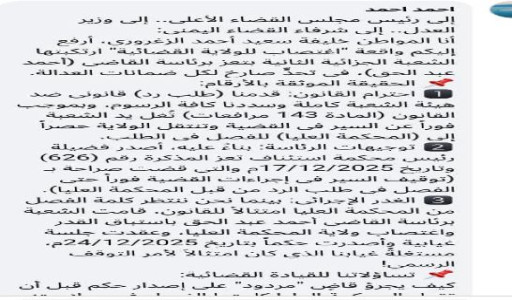 احمد احمد
إلى رئيس مجلس القضاء الأعلى.. إلى وزير
العدل.. إلى شرفاء القضاء اليمني:
أنا المواطن خليفة سعيد أحمد الزغروري، أرفع
إليكم واقعة "اغتصاب للولاية القضائية" ارتكبتها
الشعبة الجزائية الثانية بتعز برئاسة القاضي (أحمد
عبد الحق)، في تحدٍّ صارخ لكل ضمانات العدالة.
📌 الحقيقة الموثقة بالأرقام:
1️⃣ احترام القانون: قدمنا (طلب رد) قانوني ضد
هيئة الشعبة كاملة وسددنا كافة الرسوم. وبموجب
القانون (المادة 143 مرافعات) تُغل يد الشعبة
فوراً عن السير في القضية وتنتقل الولاية حصراً
إلى (المحكمة العليا) للفصل في الطلب.
2️⃣ توجيهات الرئاسة: بناءً عليه، أصدر فضيلة
رئيس محكمة استئناف تعز المذكرة رقم (626)
وتاريخ 17/12/2025م والتي قضت صراحة بـ
(توقيف السير في إجراءات القضية فوراً حتى
الفصل في طلب الرد من قبل المحكمة العليا).
3️⃣ الغدر الإجرائي: بينما نحن ننتظر كلمة الفصل
من المحكمة العليا امتثالاً للقانون، قامت الشعبة
برئاسة القاضي أحمد عبد الحق باستباق القدر
واغتصاب ولاية المحكمة العليا وعقدت جلسة
غيابية وأصدرت حكماً بتاريخ 24/12/2025م،
مستغلةً غيابنا الذي كان امتثالاً لأمر التوقف
الرسمي!
📌 تساؤلاتنا للقيادة القضائية:
كيف يجرؤ قاضٍ "مردود" على إصدار حكم قبل أن